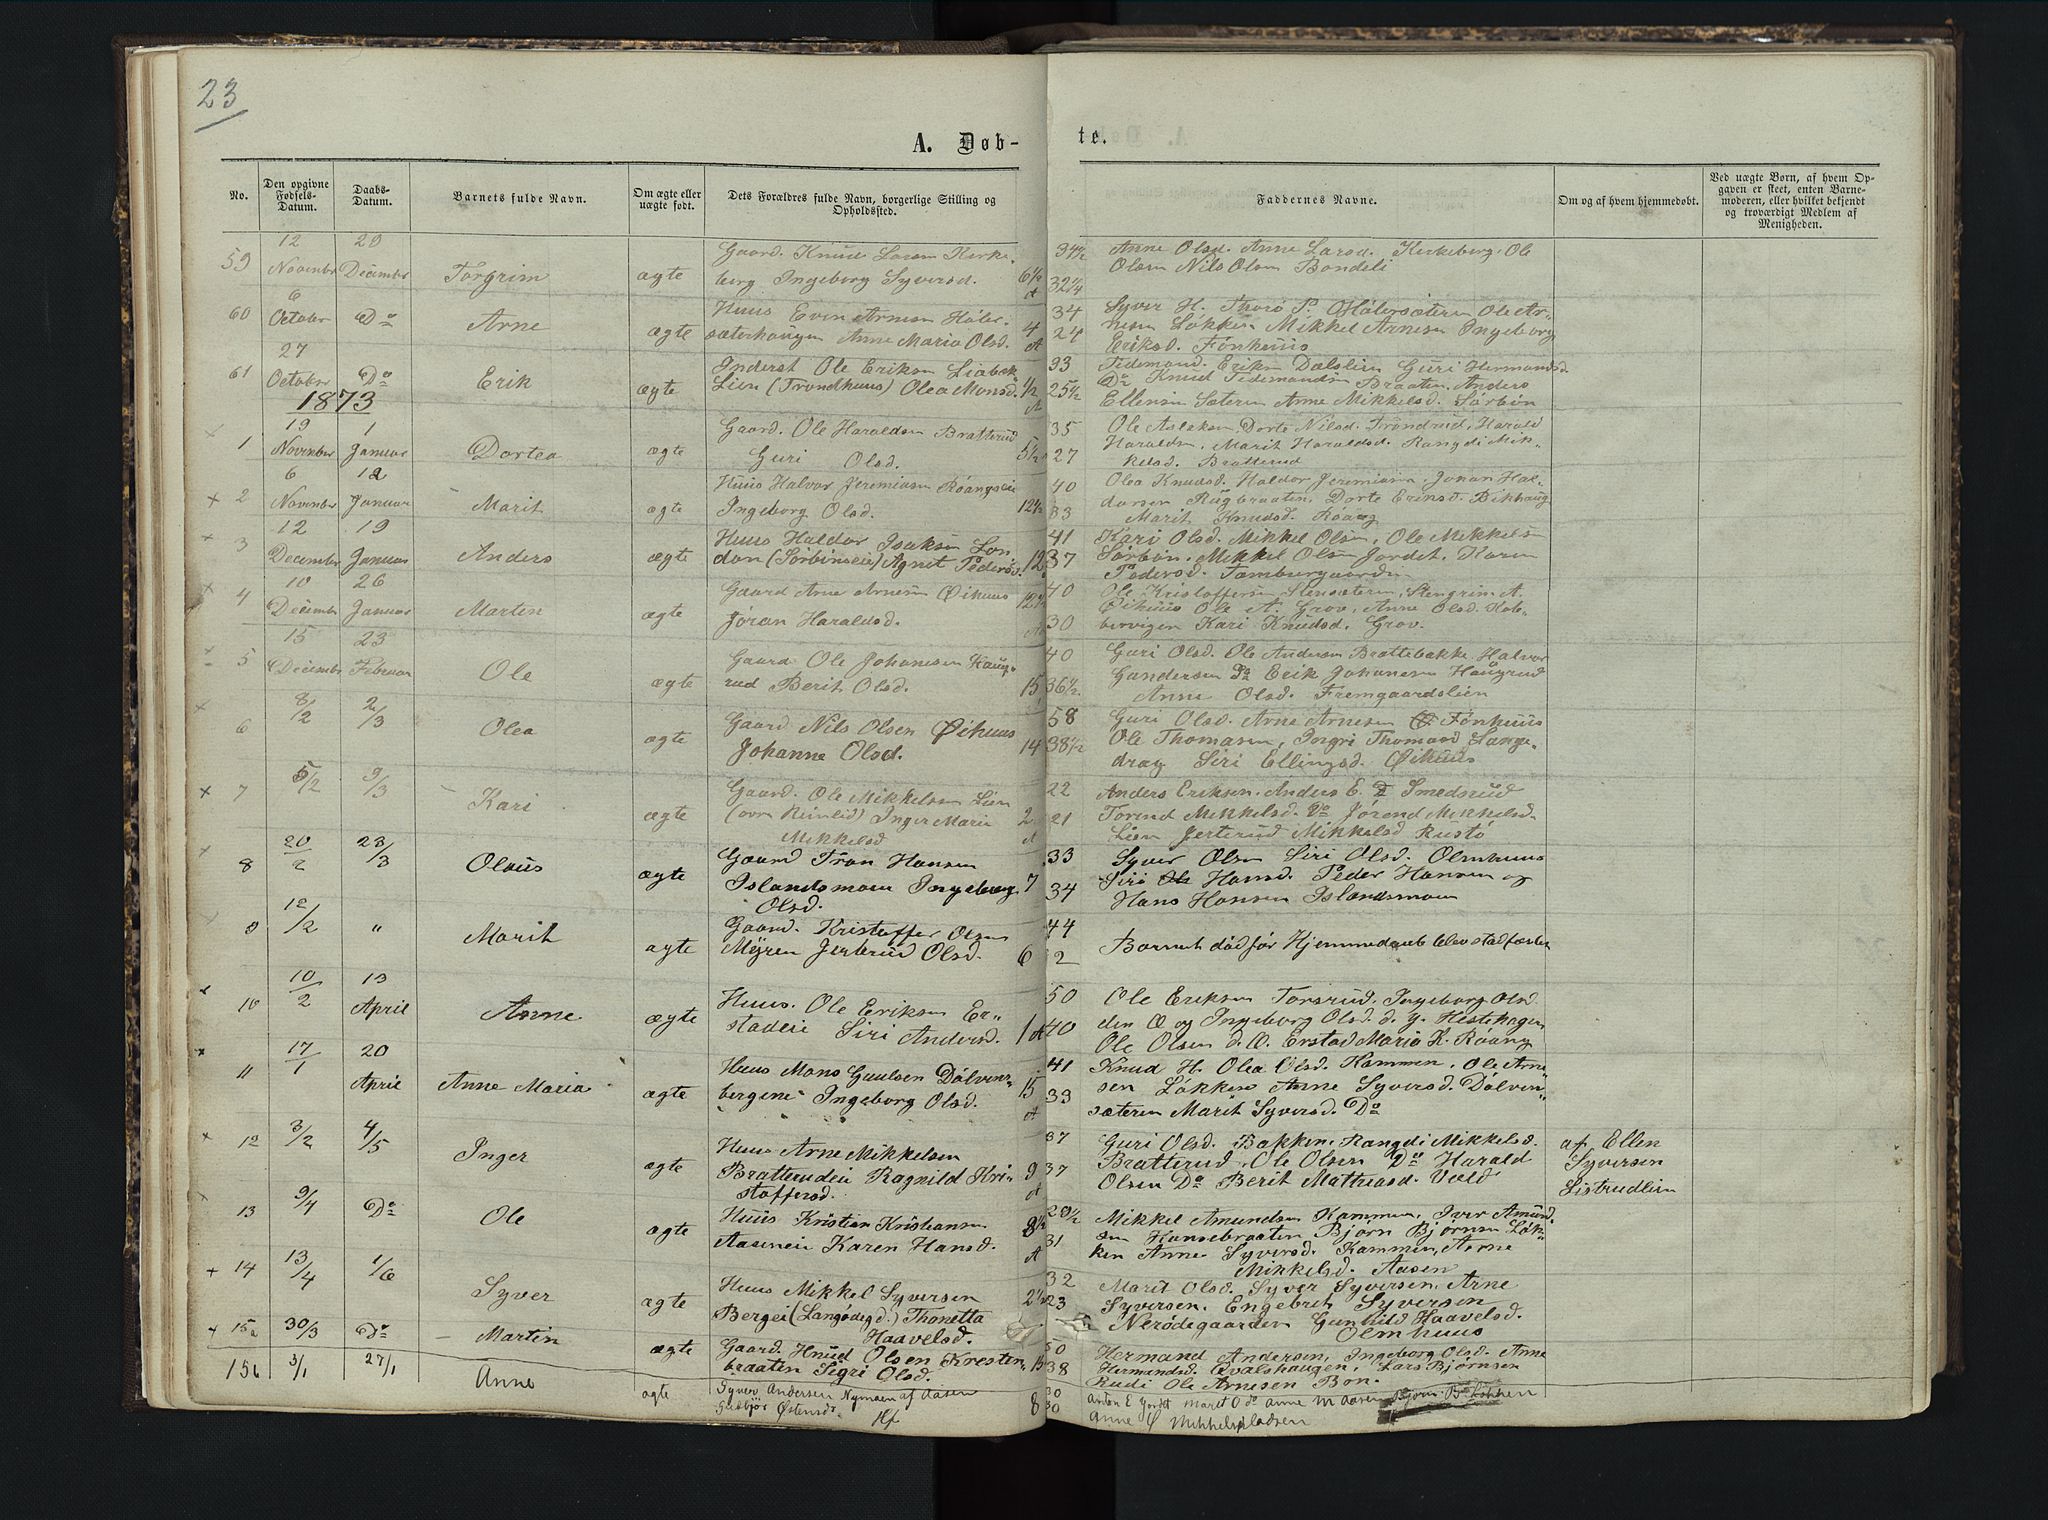 23
A. Døb-
te.
No.
Den opgivne Fødsels-Datum.
Daabs-Datum.
Barnets fulde Navn.
Om ægte eller uægte født.
Dets Forældres fulde Navn, borgerlige Stilling og Opholdssted.
Faddernes Navne.
Om og af hvem hjemmedøbt.
Ved uægte Børn, af hvem Opgaven er skeet, enten Barnemoderen, eller hvilket bekjendt og troværdigt Medlem af Menigheden.
12 29
59 November December Torgrim ægte
Gaard. Knud Larsen Kirke-
berg Ingeborg Syversd. 6½
34½ Anne Olsd. Anne Larsd. Kirkeberg. Ole
32¼ Olsen Nils Olsen Bondeli
6
60 October Do Arne ægte
Huus Even Arnesen Høler-
sæterhaugen Anne Maria Olsd. 4
34 Syver H. Thorø Ole Ar-
24 nesen Løkken Mikkel Arnesen Ingeborg
Eriksd. Fønhuus
27
61 October Do Erik ægte
Inderst Ole Eriksen
Lien (Trondhuus) Olea Monsd. ½
33 Tidemand. Eriksen Dalslien Guri Hermandsd.
25½ Do Knud Tidemandsen Braaten. Anders
Ellensen Sæteren Anne Mikkelsd. Sørbøn
1873
19 1
1 November Januar Dortea ægte
Gaard. Ole Haraldsen Bratterud
Guri Olsd. 5½
35 Ole Aslaksen. Dorte Nilsd. Trondrud. Harald
27 Haraldsen. Marit Haraldsd. Rangdi Mik-
kelsd. Bratterud
6 12
2 November Januar Marit ægte
Huus Halvor Jeremiasen Røangseie
Ingeborg Olsd. 12½
40 Olea Knudsd. Haldor Jeremiasen. Johan Hal-
33 dorsen Rugbraaten. Dorte Eriksd. Bekhaug
Marit Knudsd. Røang
12 19
3 December Januar Anders ægte
Huus Haldor Isaksen Lon-
don (Sørbøneie) Agnet Pedersd. 12
41 Kari Olsd. Mikkel Olsen. Ole Mikkels
37 Sørbøn. Mikkel Olsen Jordet. Karen
Pedersd. Tamburgaarden
10 26
4 December Januar Martin ægte
Gaard Arne Arnesen Øihuus 12½
Jøran Haraldsd.
40 Ole Kristoffersen Stensæteren. Stengrim A.
Øihuus Ole A. Grov. Anne Olsd. Kob-
30 bervigen Kari Knudsd. Grov.
15 23
5 December Februar Ole ægte
Gaard Ole Johanesen Haug-
rud Berit Olsd. 15
40 Guri Olsd. Ole Andersen Brattebakke. Halvor
36½ Gundersen Do Erik Johanesen Haugrud
Anne Olsd. Fremgaardslien
6 8/2 2/3 Olea ægte
Gaard Nils Olsen Øihuus
Johanne Olsd. 14
58 Guri Olsd. Arne Arnesen Fønhuus
38½ Ole Thomasen, Ingri Thomasd Lange-
drag Siri Ellingsd. Øihuus
7 5/2 9/3 Kari ægte
Gaard. Ole Mikkelsen Lien
Inger Marie 2
Mikkelsd
22 Anders Eriksen. Anders E. Smedsrud
21 Torend Mikkelsd. Do Jørend Mikkelsd.
Lien Jertrud Mikkelsd Rustø
8 20/2 23/3 Olaus ægte
Gaard Tron Hansen
Islandsmoen Ingeborg 7
Olsd.
33 Syver Olsen Siri Olsd. Olmhuus
34 Siri Hansd. Peder Hansen og
Hans Hansen Islandsmoen
9 12/2 " Marit ægte
Gaard. Kristoffer Olsen
Myren Jertrud Olsd. 6
44
2 Barnet død før Hjemmedaab blev stadfæstet
10 10/2 13 April Anne ægte
Huus. Ole Eriksen Er-
stadeie Siri Andersd. 1
50 Ole Eriksen Torsrud. Ingeborg Olsd.
40 den Æ og Ingeborg Olsd. d. y. Hestehagen
Ole Olsen d. Æ. Erstad Maria K. Røang
11 17/1 20 April Anne Maria ægte
Huus Mons Gaulsen Dølven-
bergeneie Ingeborg Olsd. 15
41 Knud H. Olea Olsd. Kammen. Ole Arne-
33 sen Løkken Anne Syversd. Dølven-
sæteren Marit Syversd. Do
12 3/2 4/5 Inger ægte
Huus Arne Mikkelsen
Bratterudeie Ragnild Kri- 9
stoffersd.
37 Guri Olsd. Bakken. Rangdi Mikkelsd.
37 Bratterud. Ole Olsen Do Harald
Olsen Do Berit Mathiasd. Vold
af Ellen
Syversen
Listrudlien
13 9/4 Do Ole ægte
Huus Kristian Kristiansen 8½
Aaseneie Karen Hansd.
29½ Mikkel Amundsen Kammen, Iver Amund-
31 sen Hansebraaten Bjørn Bjørnsen Løk-
ken Anne Syversd. Kammen, Arne
Mikkelsd. Aasen
14 13/4 1/6 Syver ægte
Huus Mikkel Syversen 2½
Bergeie (Langødegd.) Thonetta
Haavelsd.
32 Marit Olsd. Syver Syversen. Arne
23 Syversen. Engebret Syversen
Nerødegaarden Gunhild Haavelsd.
Olmhuus
15a 30/3 Do Martin ægte
Gaard. Knud Olsen Kresten-
braaten Sigri Olsd. 13
50 Hermand Andersen, Ingeborg Olsd. Anne
38 Hermandsd. Qvalshaugen, Lars Bjørnsen
Rudi Ole Arnesen Bøn.
15b 3/1 27/1 Anne ægte
Syver Andersen Nymoen af Aasen
Gudbjør Østensd. 8
30 Anton E Jordet Maret O do Anne M Aasen Bjørn B Løkken
30 Anne Ø Mikkelspladsen